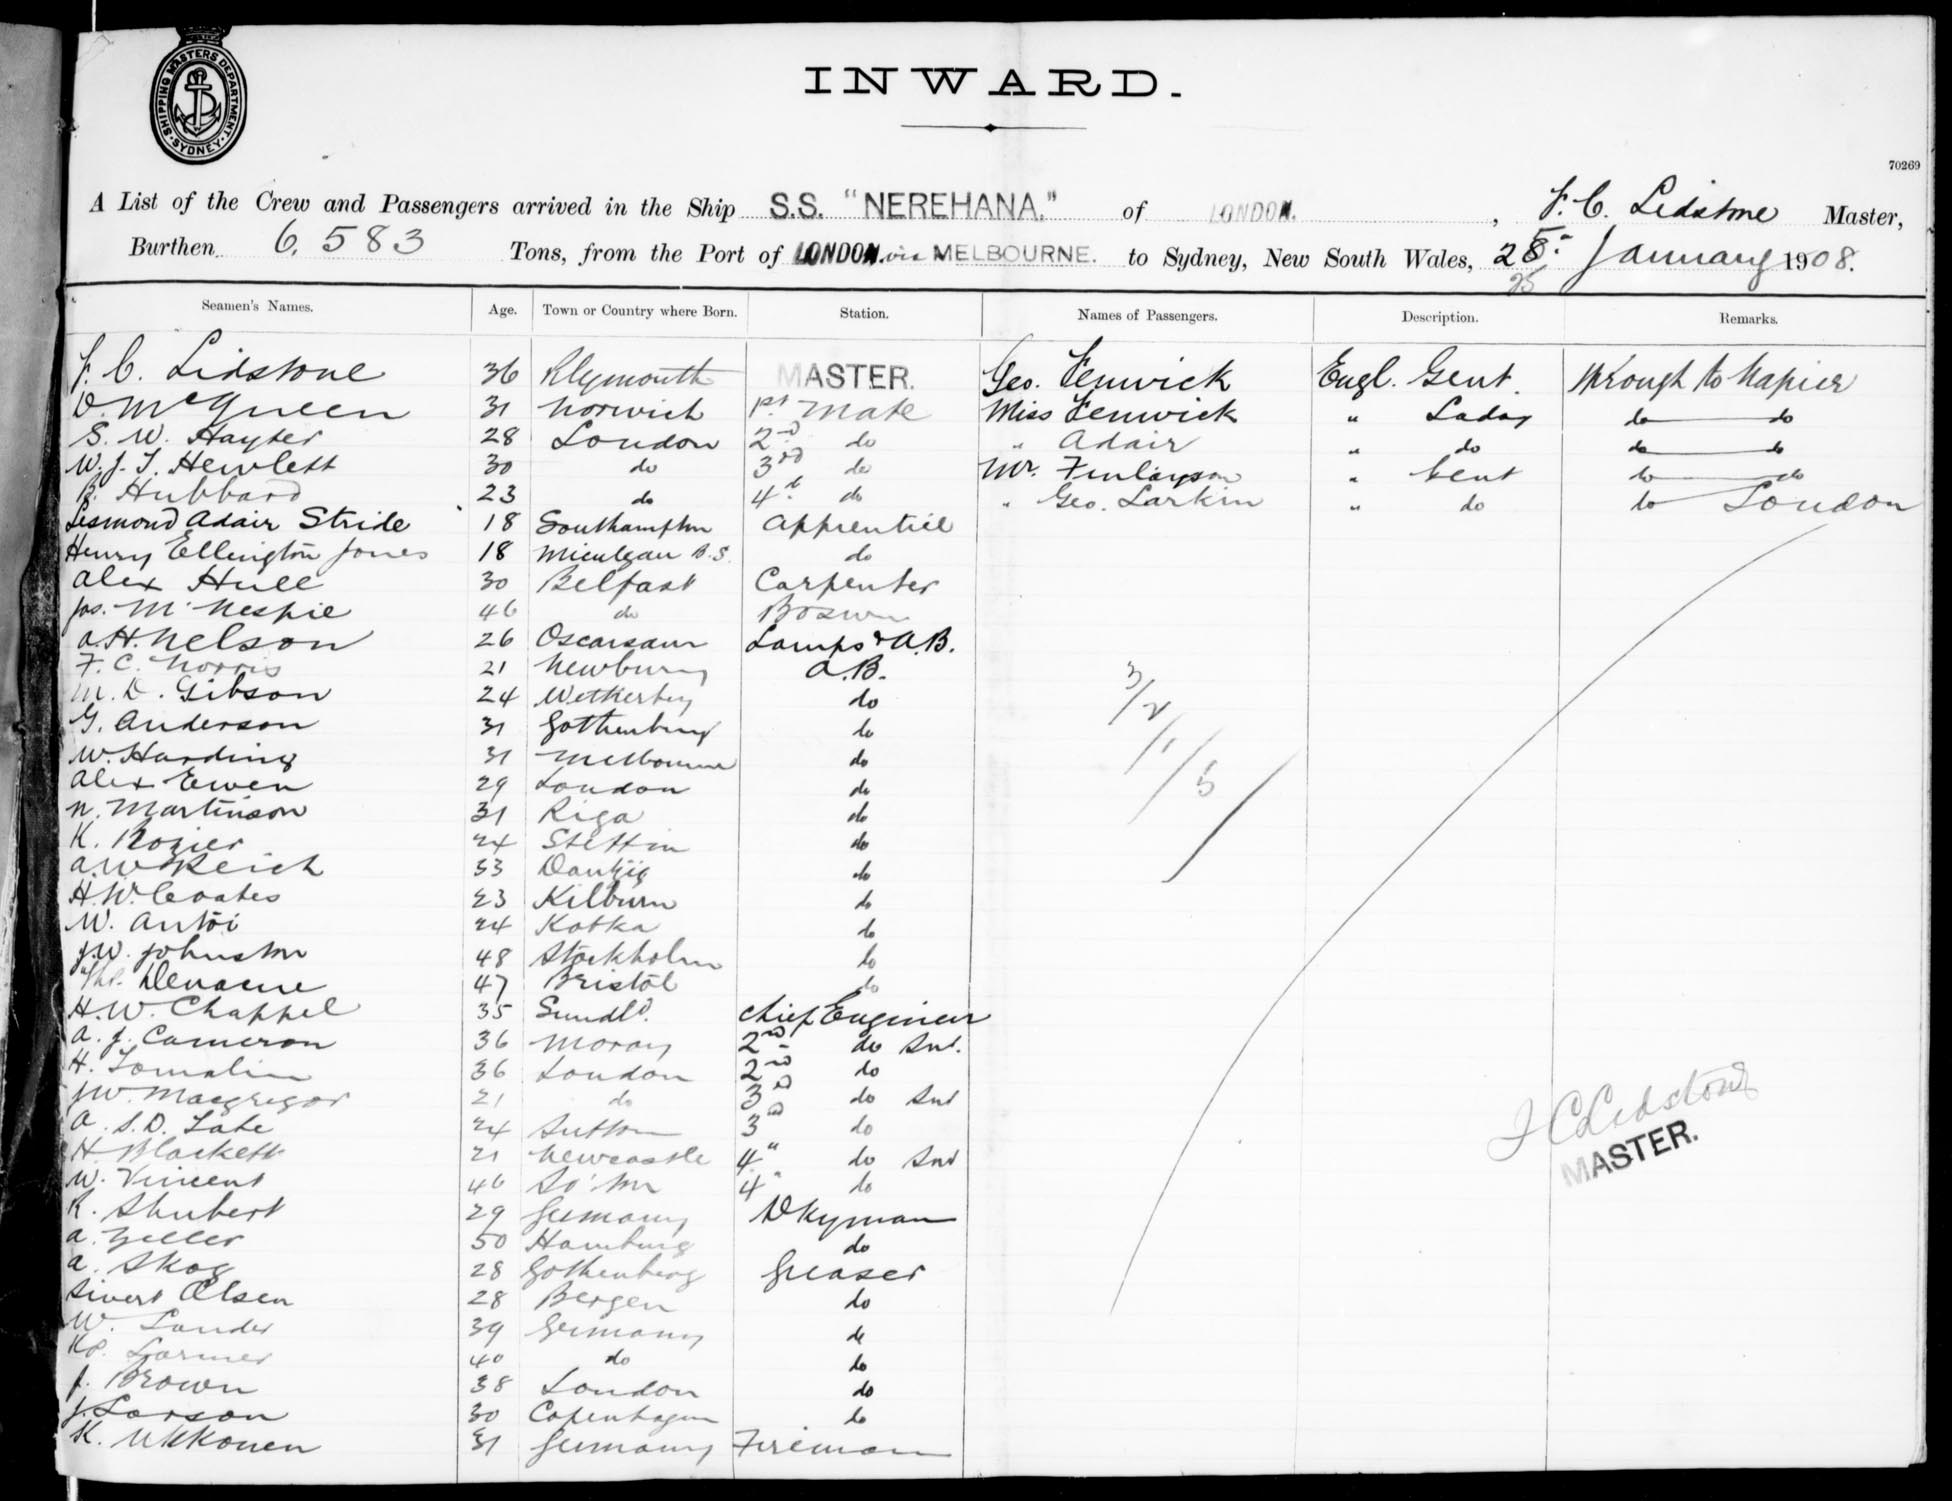 SHIPPING MASTERS DEPARTMENT
SYDNEY
INWARD.
70269
A List of the Crew and Passengers arrived in the Ship S.S. "NEREHANA." of LONDON. , F. C. Lidstone Master,
Burthen 6,583 Tons, from the Port of LONDON. via MELBOURNE. to Sydney, New South Wales, 25 January 1908.
25
Seamen's Names. Age. Town or Country where Born. Station. Names of Passengers. Description. Remarks.
F. C. Lidstone 36 Plymouth MASTER. Geo. Fenwick Engl. Gent. Through to Napier
D. McQueen 31 Norwich 1st Mate Miss Fenwick " Lady do do
S. W. Hayter 28 London 2nd do " Adair " do do do
W. J. T. Hewlett 30 do 3rd do Mr. Finlayson " Gent do do
B. Hubbard 23 do 4th do " Geo. Larkin " do do London
Lesmond Adair Stride 18 Southampton Apprentice
Henry Ellington Jones 18 do
Alex Hull 30 Belfast Carpenter
Jas. McNespie 46 do Boswn
A. H. Nelson 26 Lamps & A.B.
F. C. Norris 21 Newbury A.B.
M. D. Gibson 24 Wetherby do
G. Anderson 31 Gothenburg do
W. Harding 31 Melbourne do
Alex Ewen 29 London do
N. Martinson 31 Riga do
K. Rozier 24 Stettin do
A. W. Reich 33 Dantzig do
H. W. Coates 23 Kilburn do
W. Antoi 24 Kotka do
J. W. Johnston 48 Stockholm do
47 Bristol do
H. W. Chappel 35 Sundld. Chief Engineer
A. J. Cameron 36 Moray 2nd do Snr.
H. Tomalin 36 London 2nd do
J. W. Macgregor 21 do 3rd do Snr
A. S. D. Tate 24 Sutton 3rd do
H. Blackett 21 Newcastle 4" do Snr
W. Vincent 46 So'ton 4" do
R. Shubert 29 Germany Dkyman
A. Zeller 50 Hamburg do
A. Skog 28 Gothenberg Greaser
Sivert Olsen 28 Bergen do
W. Lander 39 Germany do
40 do do
J. Brown 38 London do
J. Larson 30 Copenhagen do
K. Ukkonen 31 Germany Fireman
3/2/1/5/
F C Lidstone
MASTER.